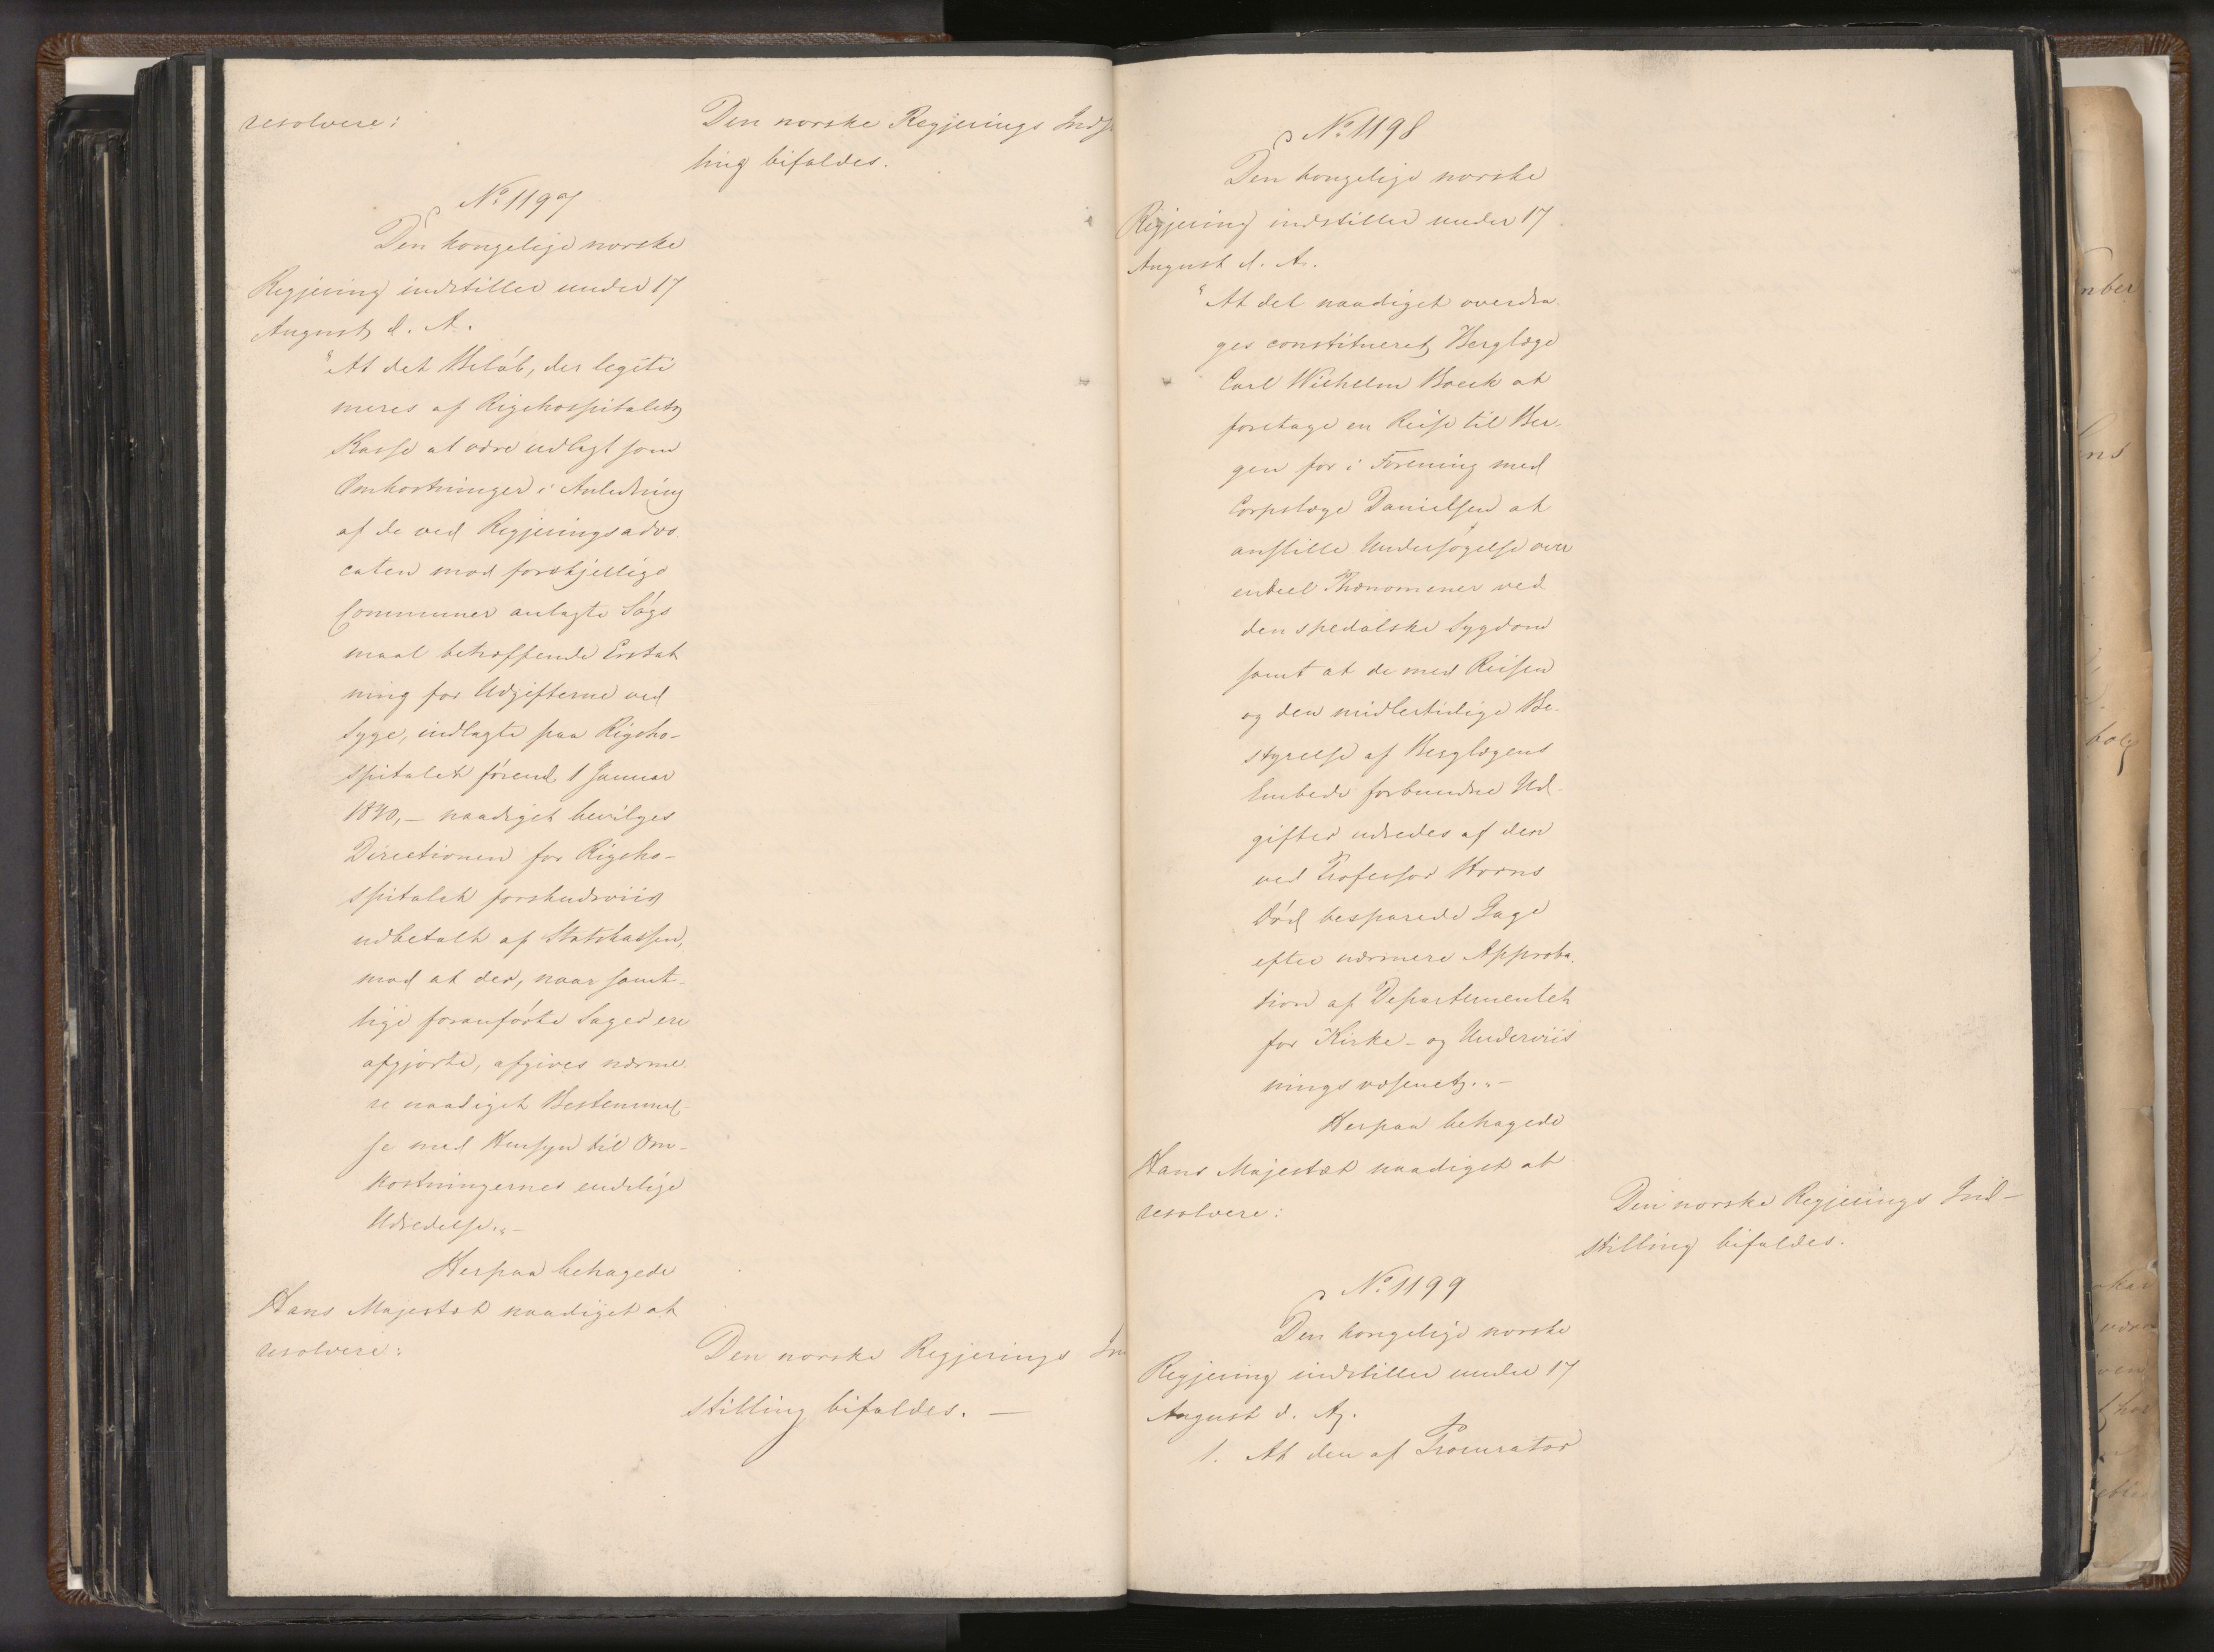 resolvere:
Den norske Regjerings Indst
ling bifaldes.
No 1197
Den kongelige norske
Regjering indstiller under 17
August d. A.
"At det Beløb, der legiti
meres af Rigshospitalets
Kasse at være udlagt som
Omkostninger i Anledning
af de ved Regjeringsadvo
caten mod forskjellige
Communer anlagte Søgs
maal betræffende Erstat
ning for Udgifterne ved
Syge, indlagte paa Rigsho-
spitalet førend 1 Januar
1840, – naadigst bevilges
Directionen for Rigsho-
spitalet forskudsviis
udbetalt af Statskassen,
mod at der, naar samt-
lige foranførte Sager ere
afgjorte, afgives nærme
re naadigst Bestemmel-
se med Hensyn til Om-
kostningernes endelige
Udredelse." –
Herpaa behagede
Hans Majestæt naadigst at
resolvere:
Den norske Regjerings In
stilling bifaldes. –
No 1198
Den kongelige norske
Regjering indstiller under 17
August d. A.
"At det naadigst overdra-
ges constitueret Berglæge
Carl Wilhelm Boeck at
foretage en Reise til Ber-
gen for i Forening med
Corpslæge Danielsen at
anstille Undersøgelse over
endeel Phænomener ved
den spedalske Sygdom
samt at de med Reisen
og den midlertidige Be-
styrelse af Berglægens
Embede forbundne Ud-
gifter udredes af den
ved Professor Horns
Død besparede Gage
efter nærmere Approba-
tion af Departementet
for Kirke- og Underviis
ningsvæsenet." –
Herpaa behagede
Hans Majestæt naadigst at
resolvere:
Den norske Regjerings Ind-
stilling bifaldes.
No 1199
Den kongelige norske
Regjering indstiller under 17
August d. A.
1. At den af Procurator